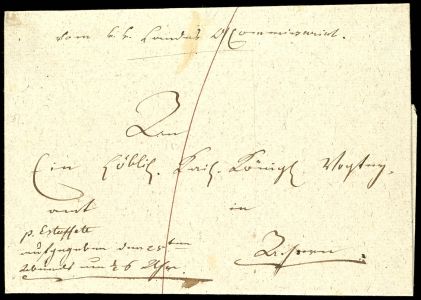 vom k. k. Landes Commissariat.
An
Ein Löblich. Kais. Königl. Vogtey,
amt in
p. Estaffette
aufgegeben den 25ten
abends um ½ 6 Uhr.